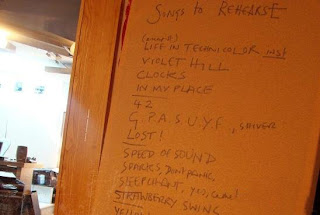 SONGS TO REHEARSE
LIFE IN TECHNICOLOR inst
VIOLET HILL
CLOCKS
IN MY PLACE
42
G.P.A.S.U.Y.F., SHIVER
LOST!
SPEED OF SOUND
SPARKS, Don't panic,
STRAWBERRY SWING
YELLOW